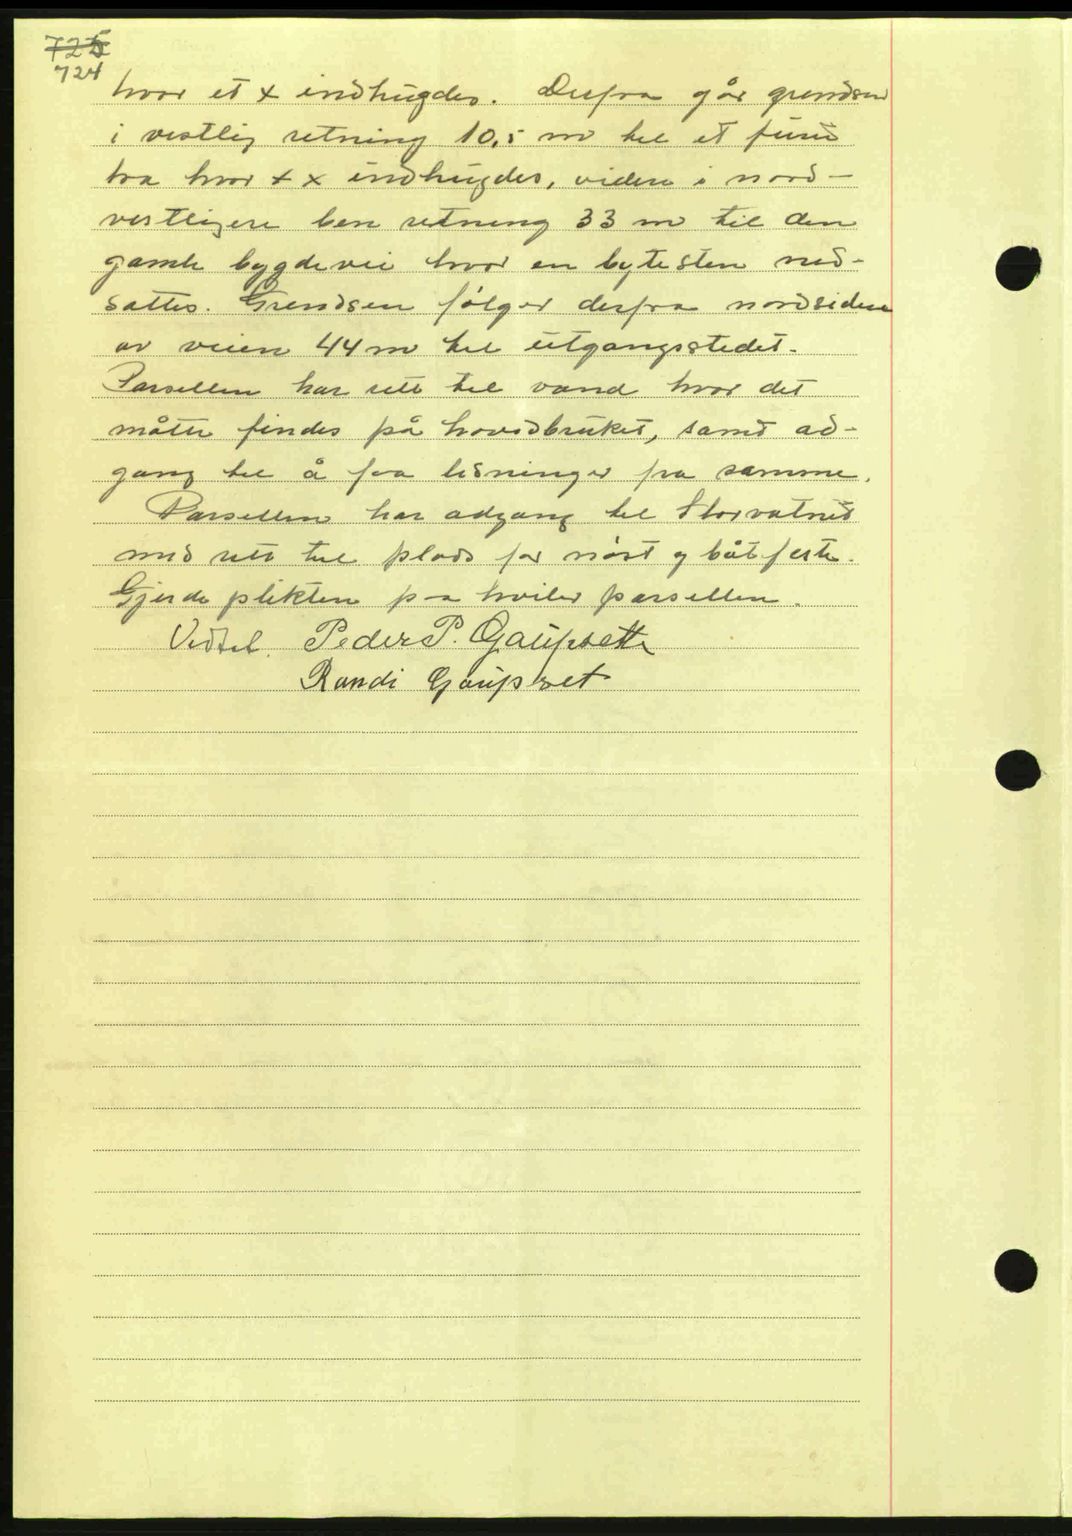 725
724
hvor et x indhugdes. Derfra går grendsen
i vestlig retning 10,5 m til et furu
tra hvor + x indhugdes, videre i nord-
vestligere ben retning 33 m til den
gamle bygdevei hvor en bytesten ned-
sattes. Grendsen følger derfra nordsiden
av veien 44 m til utgangsstedet.
Parsellen har rett til vand hvor det
måtte findes på hovedbruket, samt ad-
gang til å faa ledninger fra samme.
Parsellen har adgang til Storvatnet
med rett til plads for nøst og båtfeste.
Gjerde plikten paa hviler parsellen.
Vedtel. Peder P. Gaupsett
Randi Gaupset